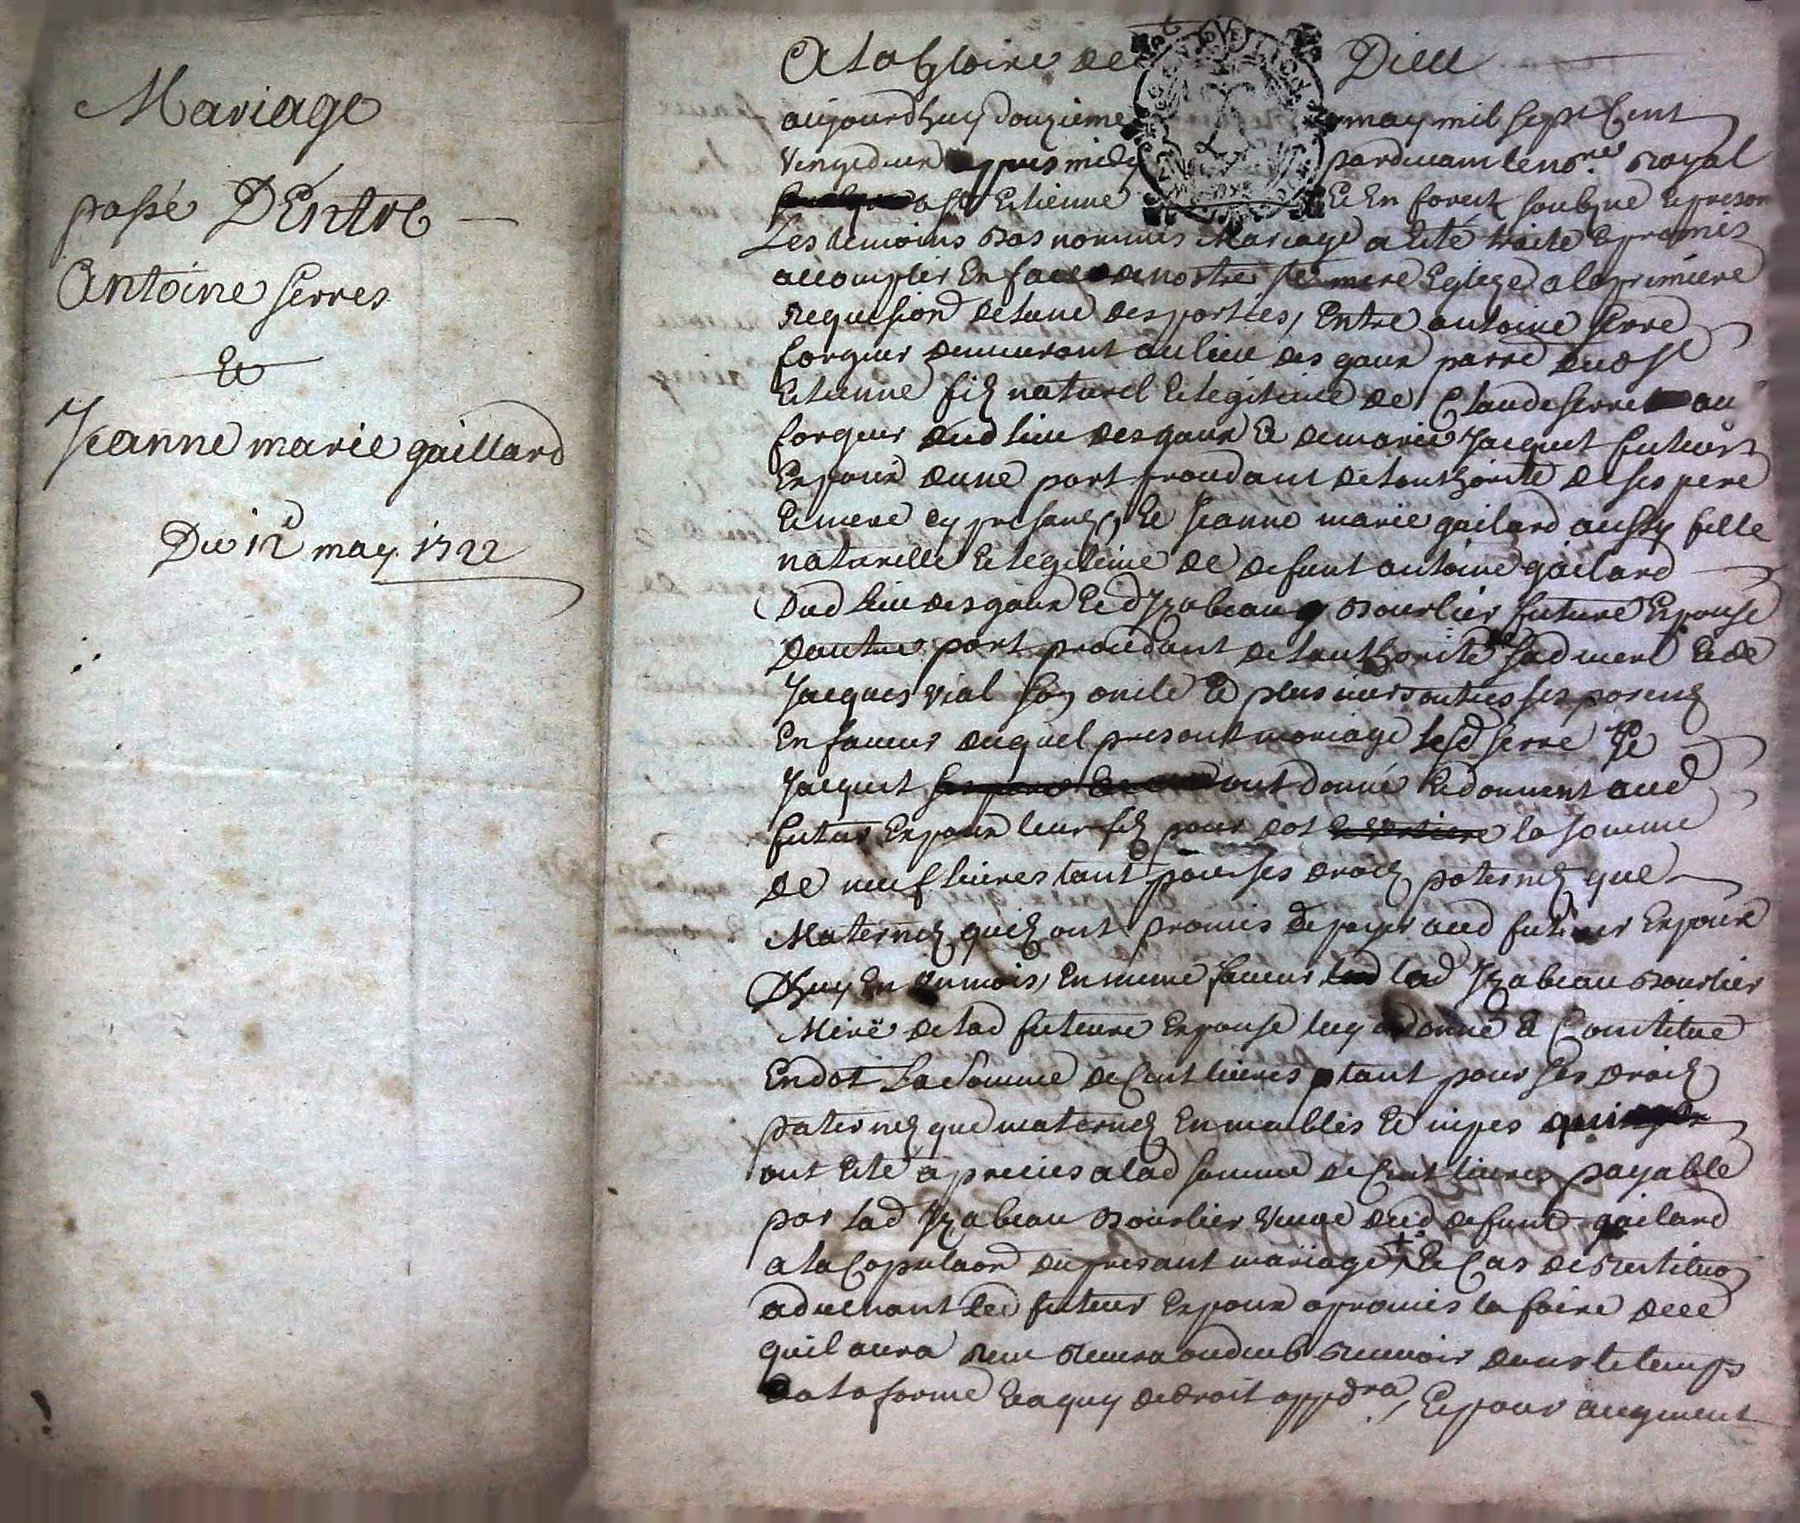 Mariage
passé D'Entre
Antoine serres
Et
Jeanne marie gaillard
Du 12e may 1722
A la Gloire de Dieu
aujourdhuy douzieme may mil sept Cent
vingt deux appres midy pardevant le no.re royal
a St Etienne Et En forest soubne Et preson
Les temoins bas nommes Mariage a Eté traite Et promis
accomplir En face de nostre Ste mere Eglize a la premiere
requision de lune des parties, Entre antoine serre
forgeur demeurant au lieu des gaux parre dud St
Etienne fiz naturel Et legitime de Claude serre au
forgeur dud lieu des gaux Et de marie Jacquet futeur
Expoux dune part proudant de lauthorite de ses pere
Et mere cy presans, Et Jeanne marie gailard aussy fille
naturelle Et legitime de defunt antoine gailard
Dud lieu des gaux Et d Yzabeau bourlier future Expouse
dautre part proudant de lauthorite de sad mere Et de
Jacques vial son oncle Et plusieurs autres ses parens
En faveur duquel presant mariage lesd serre Et
Jacquet ont donné Et donnent aud
futur Expoux leur fiz pour dot la somme
de neuf livres tant pour ses droiz paternez que
Maternez quiz ont promis de payer aud futeur Expoux
Dhuy En un mois, En meme faveur lad Yzabeau bourlier
Mere de lad futeure Expouse luy a donné Et Constitue
En dot La Somme de Cent livres tant pour ses droiz
paternez que maternez En meubles Et nipes qui
ont Eté apreciés a lad somme de Cent livres payable
par lad Yzabeau bourlier veuve dud defunt gailard
a la Copulaon du presant mariage + Et Cas de restituon
advenant led futeur Expoux a promis la faire de ce
quil aura reeu recevra ou deub recevoir dans le temps
a la forme Et a quy de droit appdra, Et pour augment